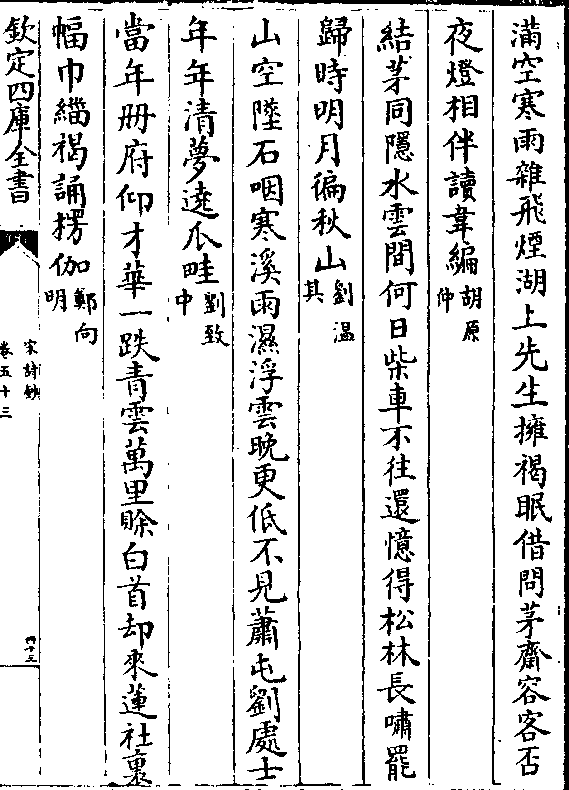 滿空寒雨雜飛煙湖上先生擁褐眠借問茅齋容客否
夜燈相伴讀韋編胡原仲
結茅同隱水雲間何日柴車不往還憶得松林長嘯罷
歸時明月徧秋山劉溫其
山空墜石咽寒溪雨濕浮雲晚更低不見蕭屯劉處士
年年清夢遶瓜畦劉致中
當年册府仰才華一跌青雲萬里賒白首却來蓮社裏
幅巾緇褐誦楞伽鄭向明
欽定四庫全書
宋詩鈔
卷五十三
四十三